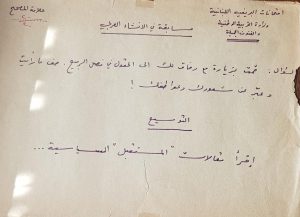 امتحانات الربيعي اللبنانية
وزارة التربية الوطنية
والفنون الجميلة
علامة المصحح
مسابقة في الانشاء العربي
السؤال: قمت بزيارة مع رفاق لك الى الحقول في فصل الربيع. صف ما رأيت
وعبّر عن شعورك وعواطفك!
التوسيع
إقرأ مقالات "المستقبل" السياسية...